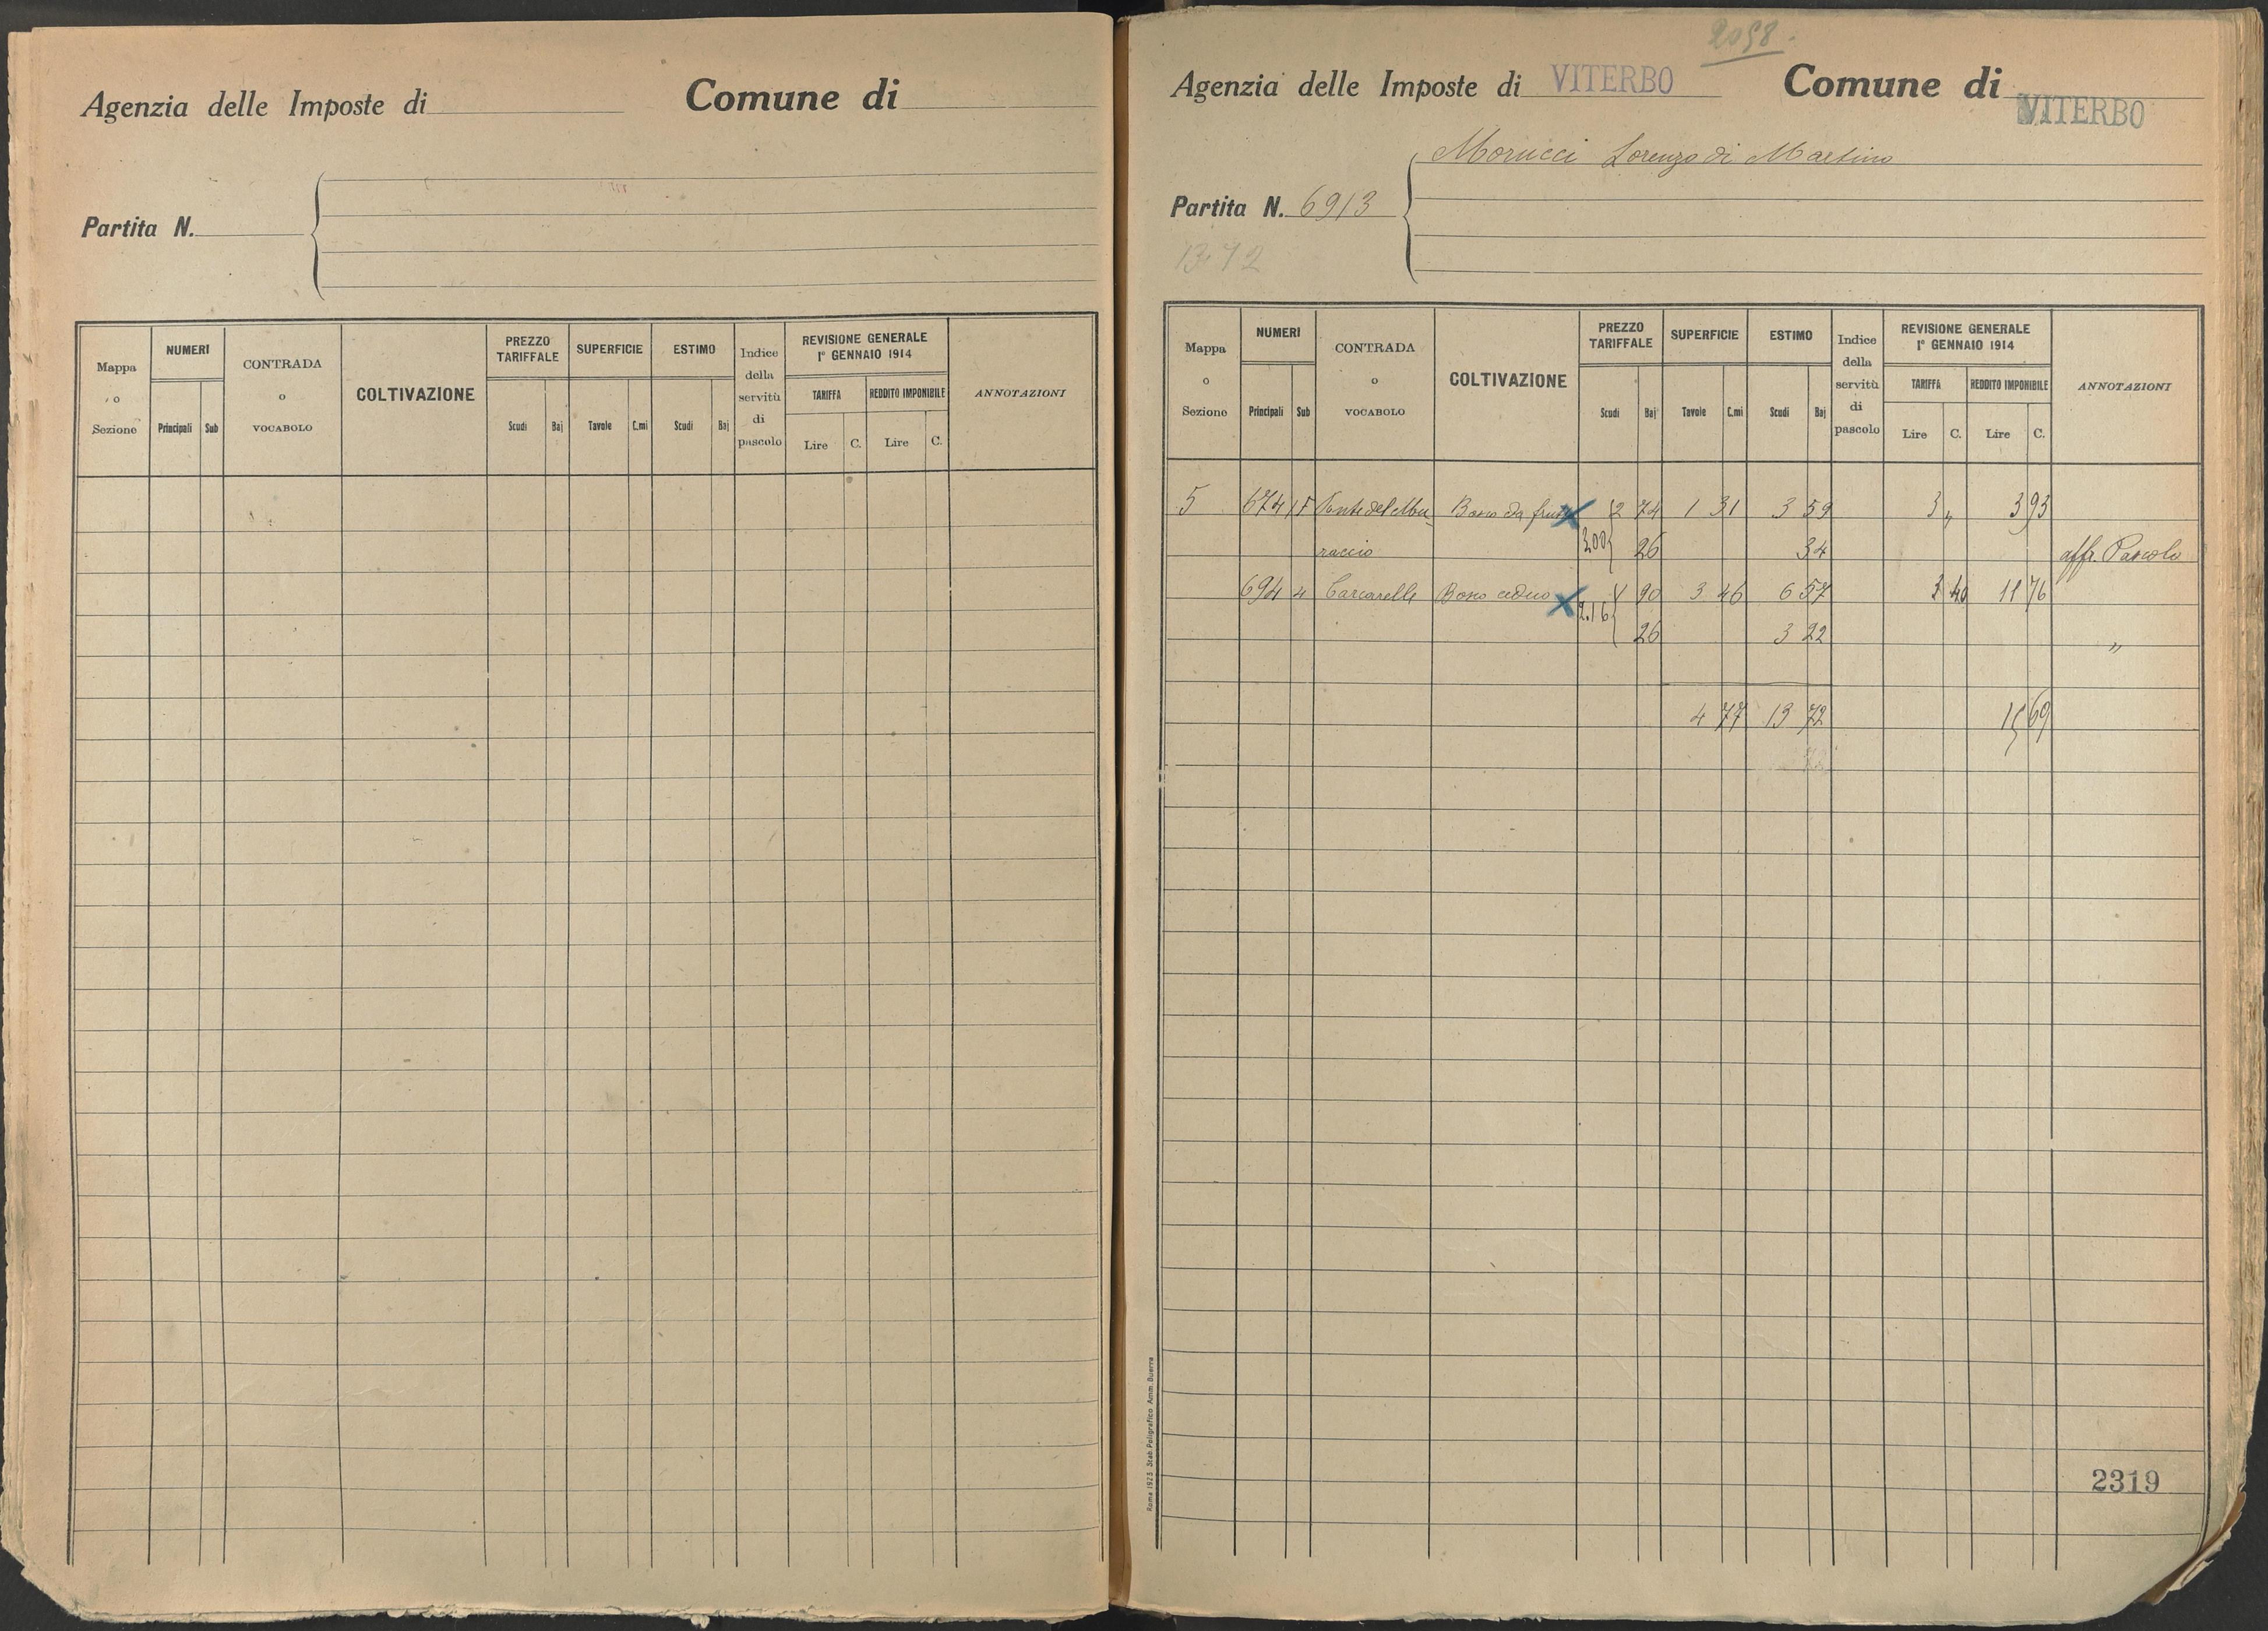 Agenzia delle Imposte di
Comune di
Partita N.
Mappa o Sezione
NUMERI
Principali Sub
CONTRADA o VOCABOLO
COLTIVAZIONE
PREZZO TARIFFALE
Scudi Baj
SUPERFICIE
Tavole C.mi
ESTIMO
Scudi Baj
Indice della servitù di pascolo
REVISIONE GENERALE 1° GENNAIO 1914
TARIFFA
Lire C.
REDDITO IMPONIBILE
Lire C.
ANNOTAZIONI
2058.
Agenzia delle Imposte di VITERBO
Comune di VITERBO
Morucci Lorenzo di Martino
Partita N. 6913
13.72
Mappa o Sezione
NUMERI
Principali Sub
CONTRADA o VOCABOLO
COLTIVAZIONE
PREZZO TARIFFALE
Scudi Baj
SUPERFICIE
Tavole C.mi
ESTIMO
Scudi Baj
Indice della servitù di pascolo
REVISIONE GENERALE 1° GENNAIO 1914
TARIFFA
Lire C.
REDDITO IMPONIBILE
Lire C.
ANNOTAZIONI
5 674 Bosco da frutto 2 74 1 31 3 59 3 „ 3 93
raccio 3.00 26 34 aff. Pascolo
694 4 Carcarelle Bosco ceduo 1 90 3 46 6 57 3 40 11 76
2.16 26 3 22 „
4 77 13 72 15 69
Roma 1923 Stab. Poligrafico Amm. Guerra
2319